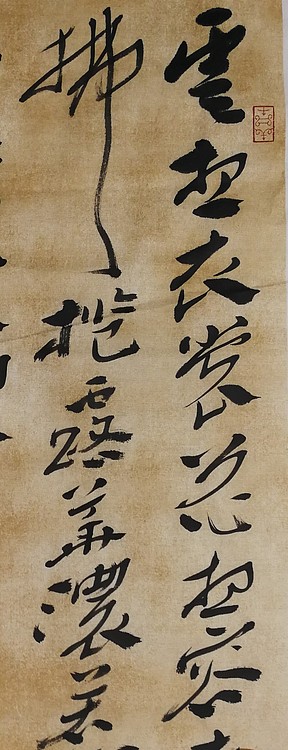 雲想衣裳花想容
拂檻露華濃若